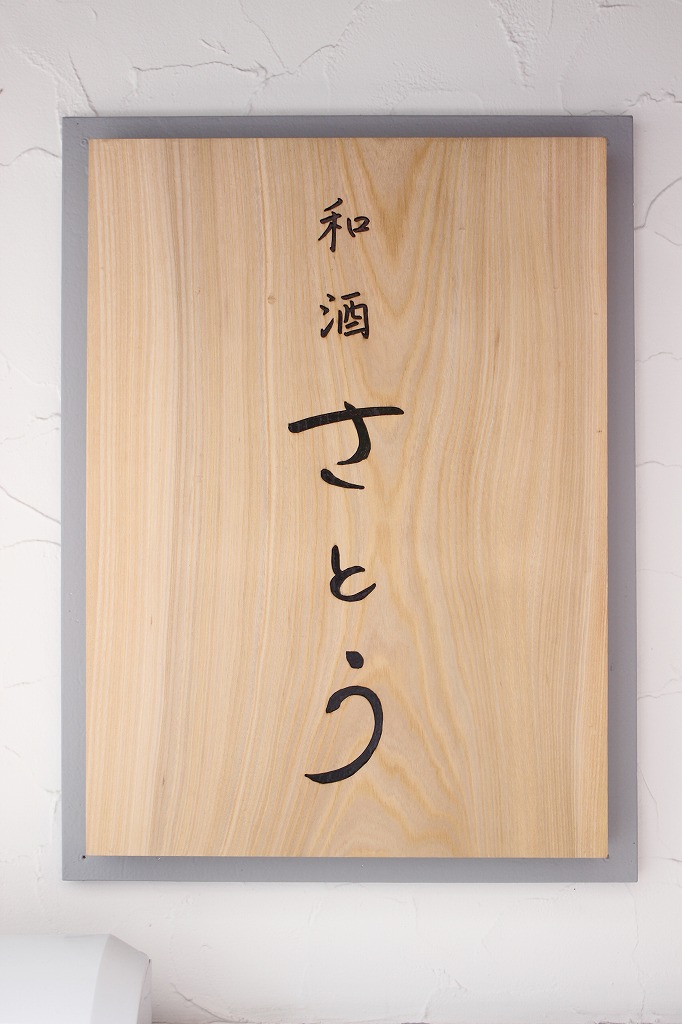 和酒さとう